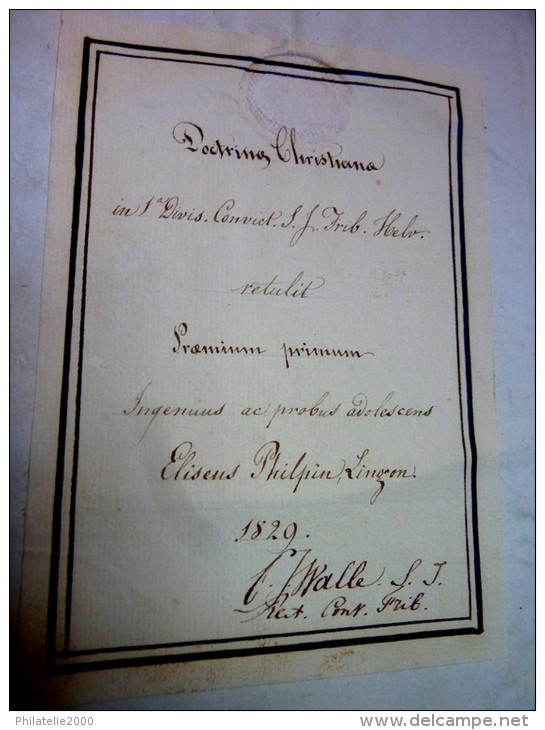 Doctrinæ Christianæ
in 1ª Divis. Convict. S. J. Frib. Helv.
retulit
Præmium primum
Ingenuus ac probus adolescens
Eliseus Philpin, Lingon.
1829.
Walle. S. J.
Rect. Conv. Frib.
Philatelie2000
www.delcampe.net